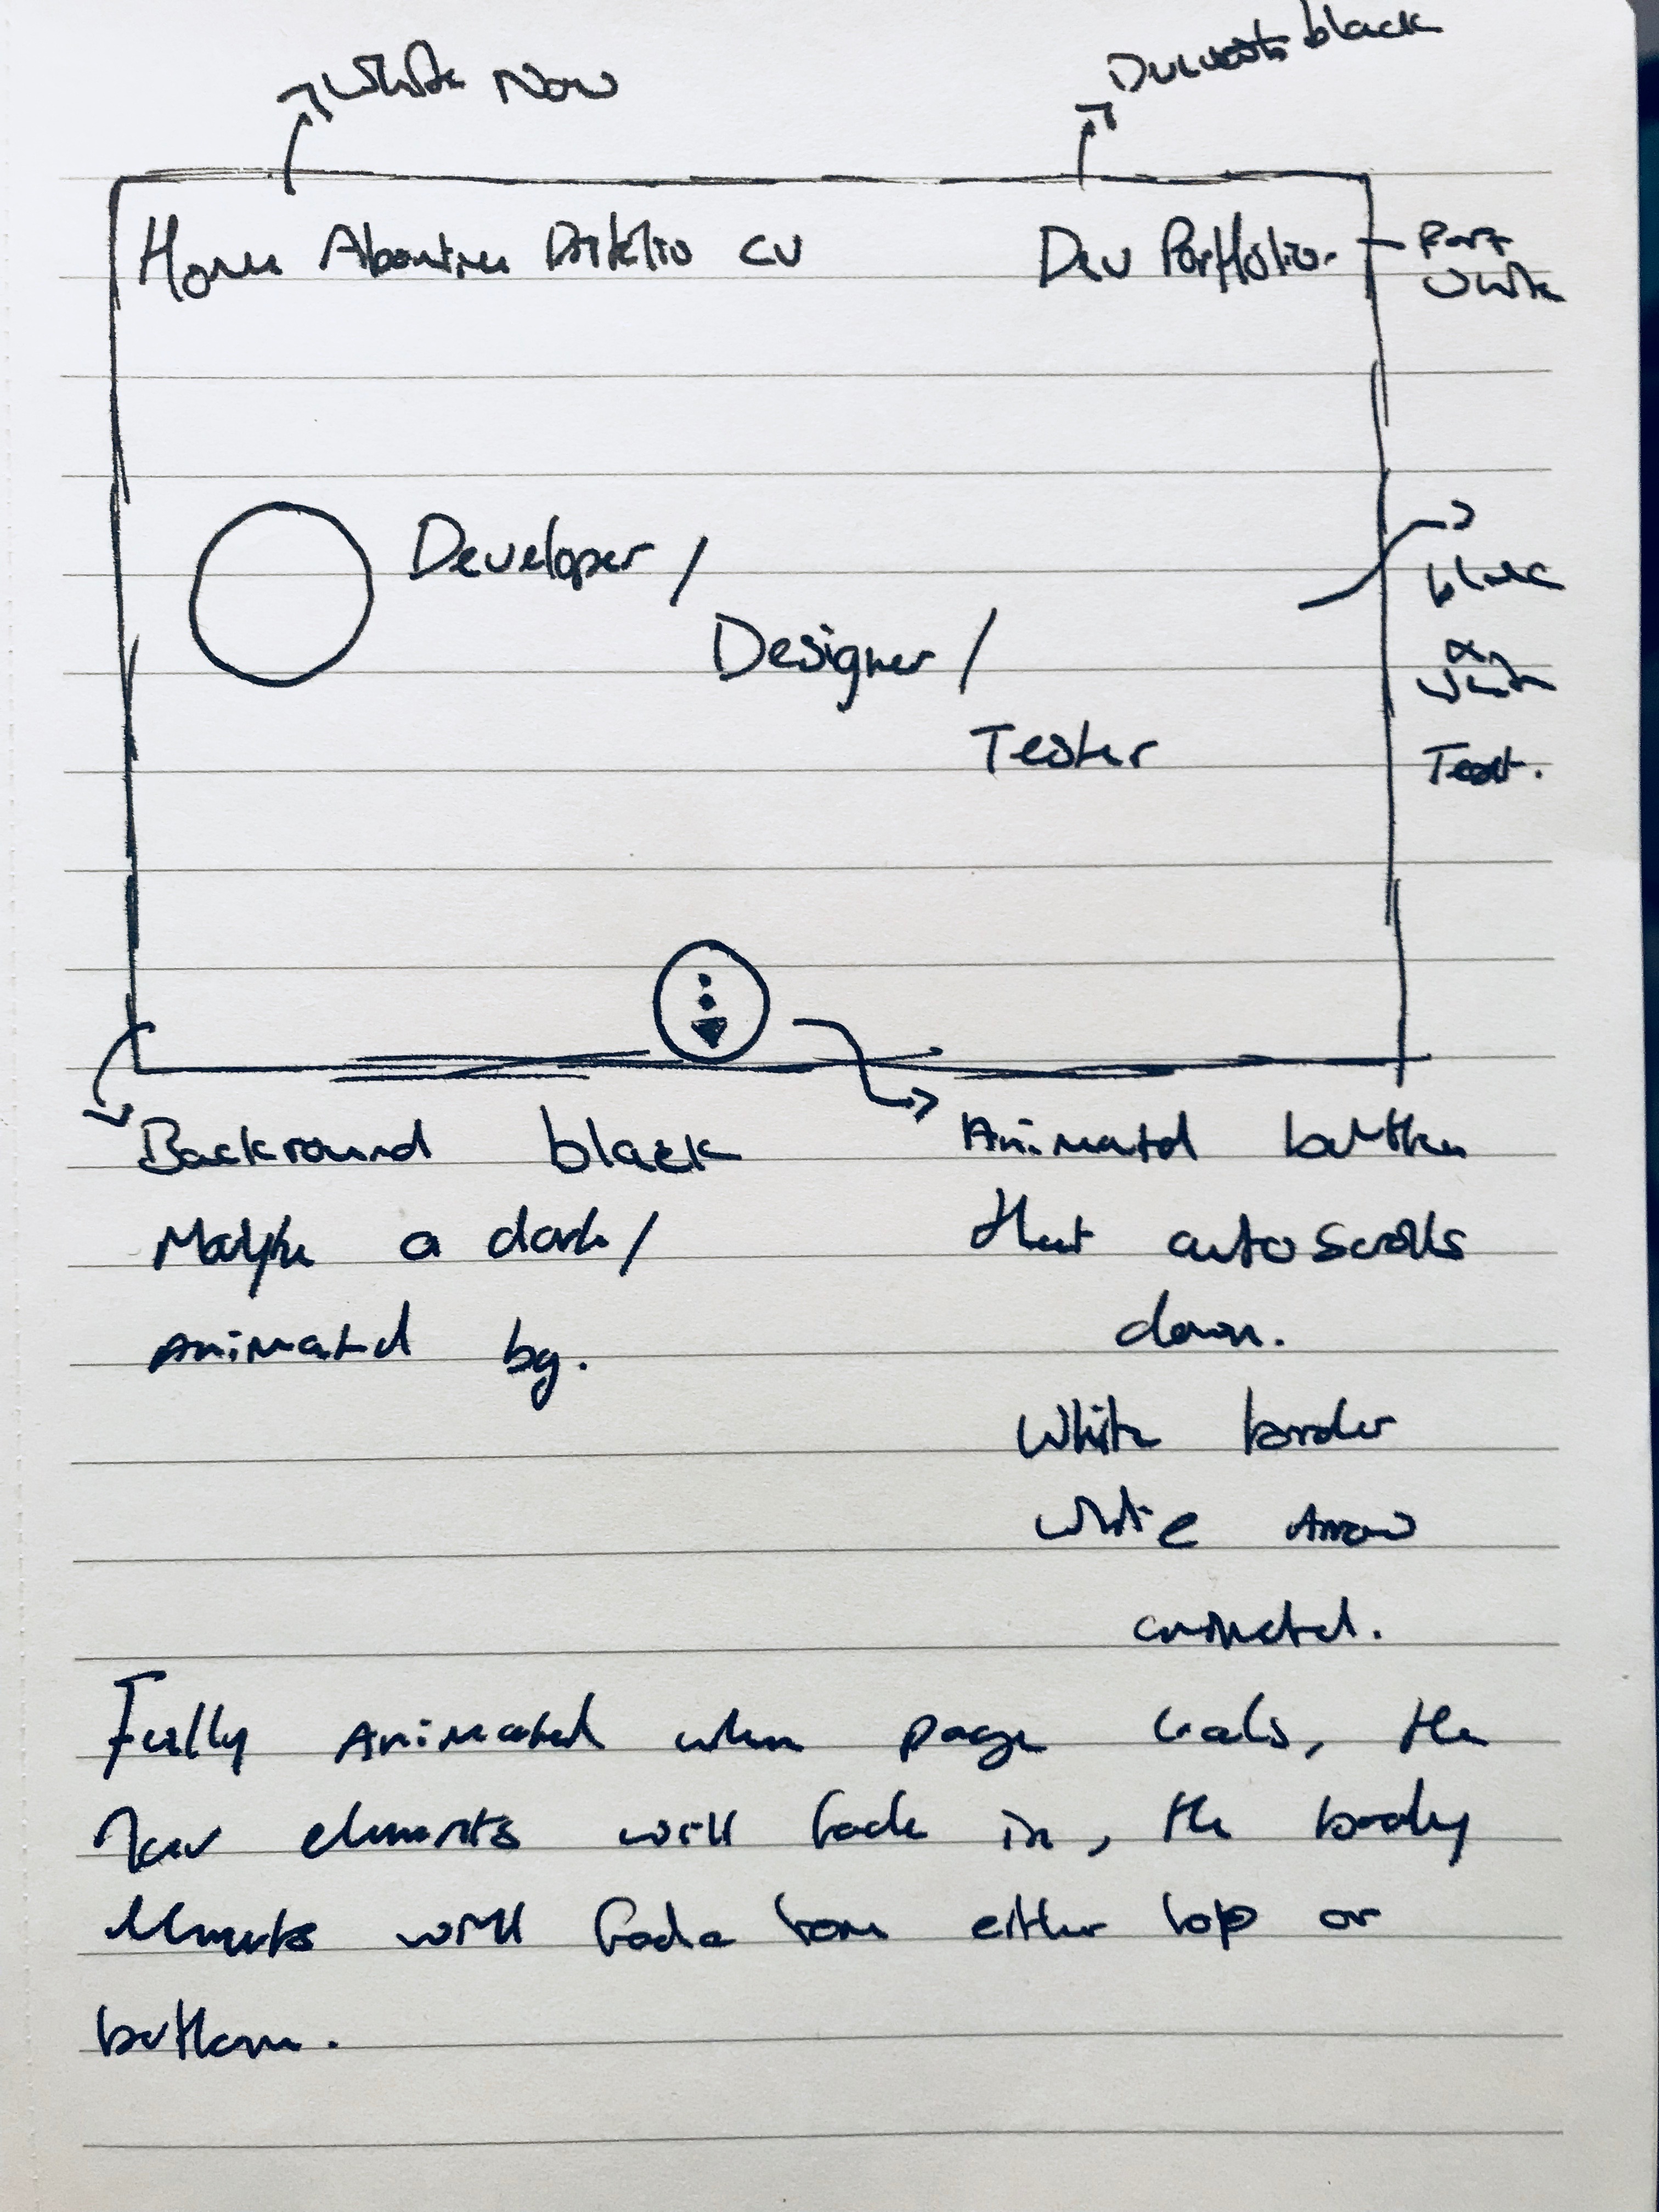 White Nav
black
Home Aboutme Portfolio CV
Dev Portfolio.
Port
White
Developer /
Designer /
Tester
black
White
Text.
Backround black
Maybe a dark/
animated bg.
Animated button
that autoscrolls
down.
White border
White Arrow
animated.
Fully Animated when page loads, the
Nav elements will fade in, the body
elements will fade from either top or
bottom.